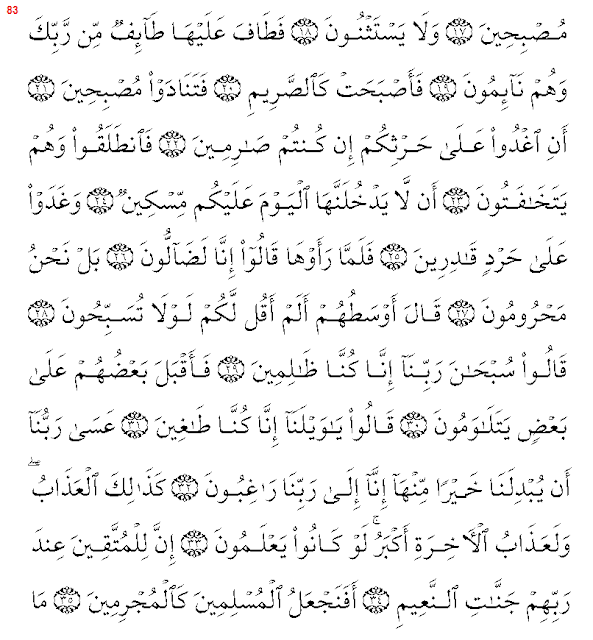 83
مُصْبِحِينَ ١٧ وَلَا يَسْتَثْنُونَ ١٨ فَطَافَ عَلَيْهَا طَآئِفٌ مِّن رَّبِّكَ
وَهُمْ نَآئِمُونَ ١٩ فَأَصْبَحَتْ كَٱلصَّرِيمِ ٢٠ فَتَنَادَوْا۟ مُصْبِحِينَ ٢١
أَنِ ٱغْدُوا۟ عَلَىٰ حَرْثِكُمْ إِن كُنتُمْ صَٰرِمِينَ ٢٢ فَٱنطَلَقُوا۟ وَهُمْ
يَتَخَٰفَتُونَ ٢٣ أَن لَّا يَدْخُلَنَّهَا ٱلْيَوْمَ عَلَيْكُم مِّسْكِينٌ ٢٤ وَغَدَوْا۟
عَلَىٰ حَرْدٍ قَٰدِرِينَ ٢٥ فَلَمَّا رَأَوْهَا قَالُوٓا۟ إِنَّا لَضَآلُّونَ ٢٦ بَلْ نَحْنُ
مَحْرُومُونَ ٢٧ قَالَ أَوْسَطُهُمْ أَلَمْ أَقُل لَّكُمْ لَوْلَا تُسَبِّحُونَ ٢٨
قَالُوا۟ سُبْحَٰنَ رَبِّنَآ إِنَّا كُنَّا ظَٰلِمِينَ ٢٩ فَأَقْبَلَ بَعْضُهُمْ عَلَىٰ
بَعْضٍ يَتَلَٰوَمُونَ ٣٠ قَالُوا۟ يَٰوَيْلَنَآ إِنَّا كُنَّا طَٰغِينَ ٣١ عَسَىٰ رَبُّنَآ
أَن يُبْدِلَنَا خَيْرًا مِّنْهَآ إِنَّآ إِلَىٰ رَبِّنَا رَٰغِبُونَ ٣٢ كَذَٰلِكَ ٱلْعَذَابُ ۖ
وَلَعَذَابُ ٱلْأَخِرَةِ أَكْبَرُ ۚ لَوْ كَانُوا۟ يَعْلَمُونَ ٣٣ إِنَّ لِلْمُتَّقِينَ عِندَ
رَبِّهِمْ جَنَّٰتِ ٱلنَّعِيمِ ٣٤ أَفَنَجْعَلُ ٱلْمُسْلِمِينَ كَٱلْمُجْرِمِينَ ٣٥ مَا